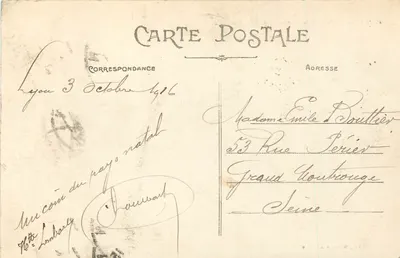 CARTE POSTALE
CORRESPONDANCE
ADRESSE
Lyon 3 Octobre 1916
Un coin du pays natal
Madame Emile Bouttier
53 Rue Périer
Grand Montrouge
Seine